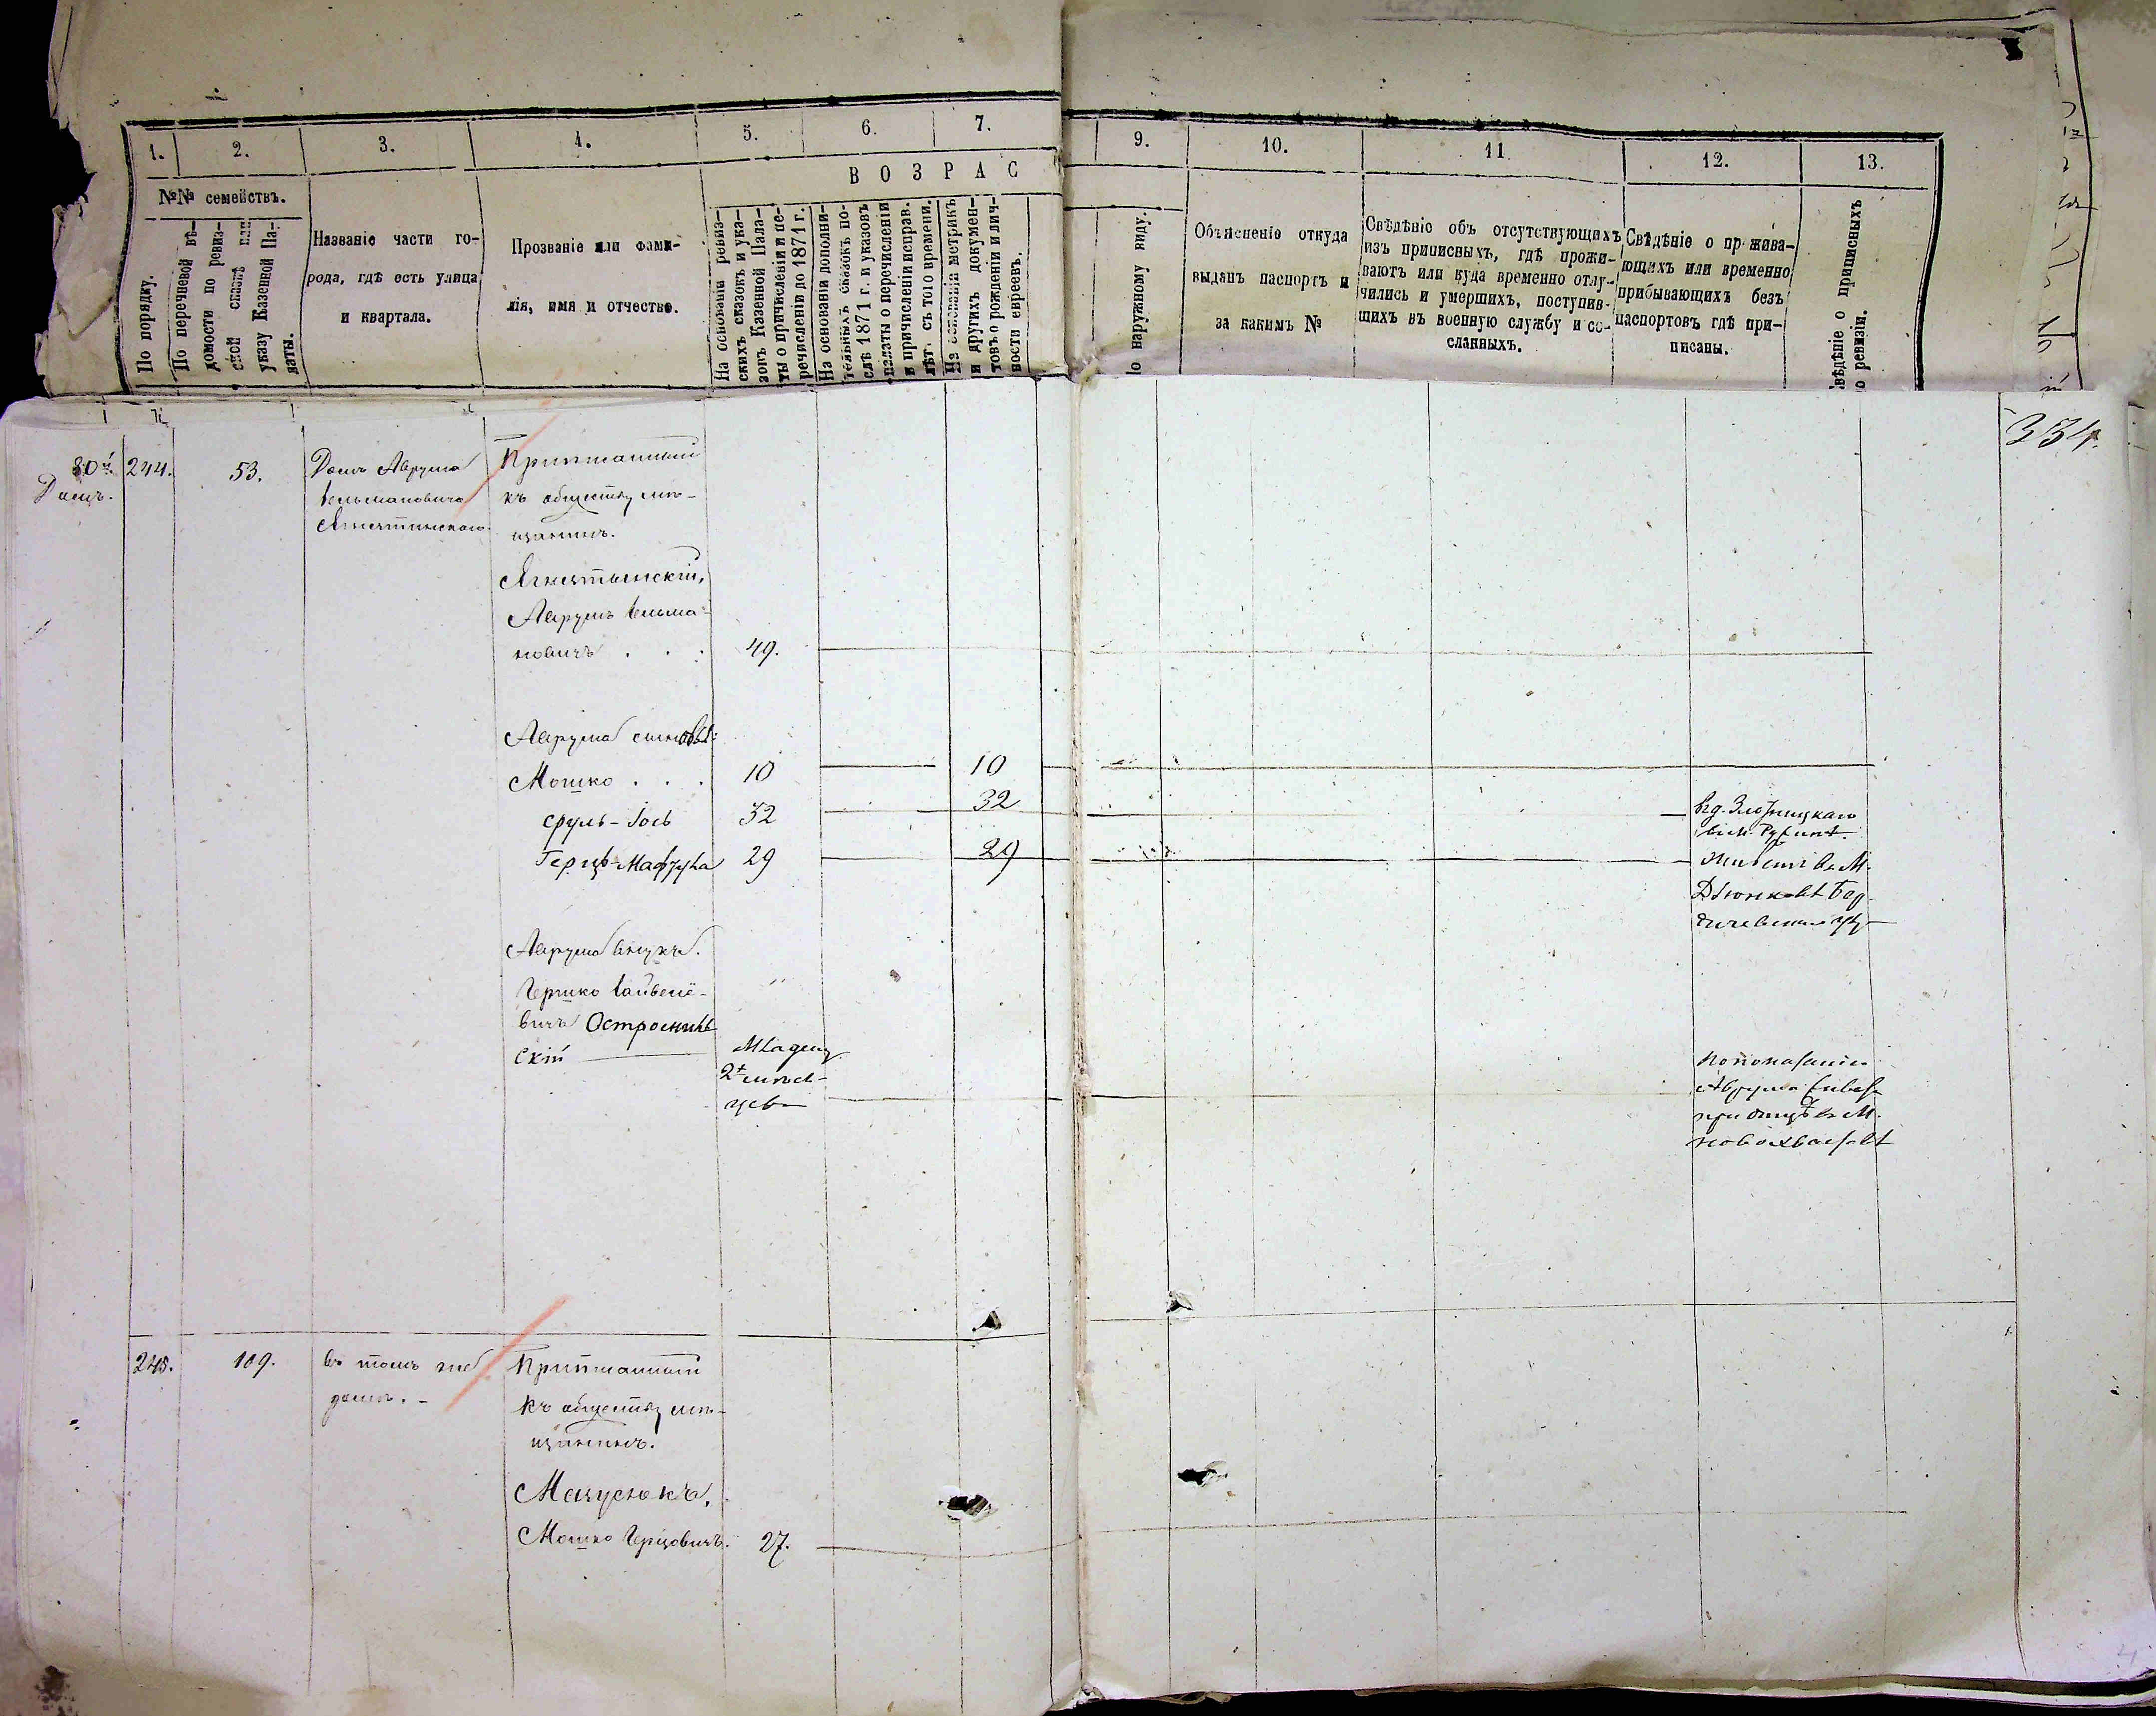 1. 2. 3. 4. 5. 6. 7. 9. 10. 11. 12. 13.
№№ семействъ.
По порядку.
По перечневой вѣ-
домости по ревиз-
ской сказкѣ или
указу Казенной Па-
латы.
Названіе части го-
рода, гдѣ есть улица
и квартала.
Прозваніе или фами-
лія, имя и отчество.
В О З Р А С
На основаніи ревиз-
скихъ сказокъ и ука-
зовъ Казенной Пала-
ты о причисленіи и пе-
речисленіи до 1871 г.
На основаніи дополни-
тельныхъ сказокъ по-
слѣ 1871 г. и указовъ
палаты о перечисленіи
и причисленіи исправ.
лѣт. съ того времени.
На основаніи метрикъ
и другихъ докумен-
товъ о рожденіи и лич-
ности евреевъ.
о наружному виду.
Объясненіе откуда
выданъ паспортъ и
за какимъ №
Свѣдѣніе объ отсутствующихъ
изъ приписныхъ, гдѣ прожи-
ваютъ или куда временно отлу-
чились и умершихъ, поступив-
шихъ въ военную службу и со-
сланныхъ.
Свѣдѣніе о прожива-
ющихъ или временно
прибывающихъ безъ
паспортовъ гдѣ при-
писаны.
вѣдѣніе о приписныхъ
о ревизіи.
334.
80й
Домъ.
244.
53.
Домъ Аврума
Вельмановича
Ягнятинскаго
Приписанный
къ обществу мѣ-
щанинъ.
Ягнятинскій,
Аврумъ Вельма-
новичъ . . . 49.
Аврума сыновья:
Мошко . . . 10 10
Сруль-Іось 32 32
Герцъ 29 29
вист.
живетъ въ М.
Аврума внукъ.
Гершко
вичъ Остро
скій
Младен.
2х мѣся-
цевъ
по показанію
Аврума
при отцѣ въ М.
245.
109.
въ томъ же
домѣ. -
Приписанный
къ обществу мѣ-
щанинъ.
Мошко Герцовичъ. 27.